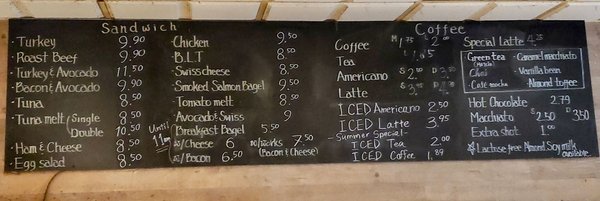 Sandwich
Turkey 9.90
Roast Beef 9.90
Turkey & Avocado 11.50
Bacon & Avocado 9.90
Tuna 8.50
Tuna melt / Single 8.50
Double 10.50
Ham & Cheese 8.50
Egg salad 8.50
Chicken 9.50
B.L.T 8.50
Swiss cheese 8.50
Smoked Salmon Bagel 9.50
Tomato melt 8.50
Avocado & Swiss 9
Until 11am
Breakfast Bagel 5.50
w/Cheese 6 w/works 7.50
w/Bacon 6.50 (Bacon & Cheese)
Coffee
Coffee
Tea
Americano
Latte
ICED Americano 2.50
ICED Latte 3.95
Summer Special
ICED Tea 2.00
ICED Coffee 1.89
Special Latte 4.25
Green tea · Caramel macchiato
Chai · Vanilla bean
Cafe mocha · Almond toffee
Hot Chocolate 2.79
Macchiato S 2.50 D 3.50
Extra Shot 1.00
Lactose free, Almond, Soy milk
available